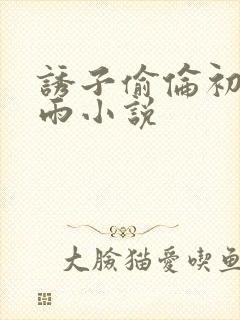 誘子偷倫初
雨小説
大臉猫愛喫魚